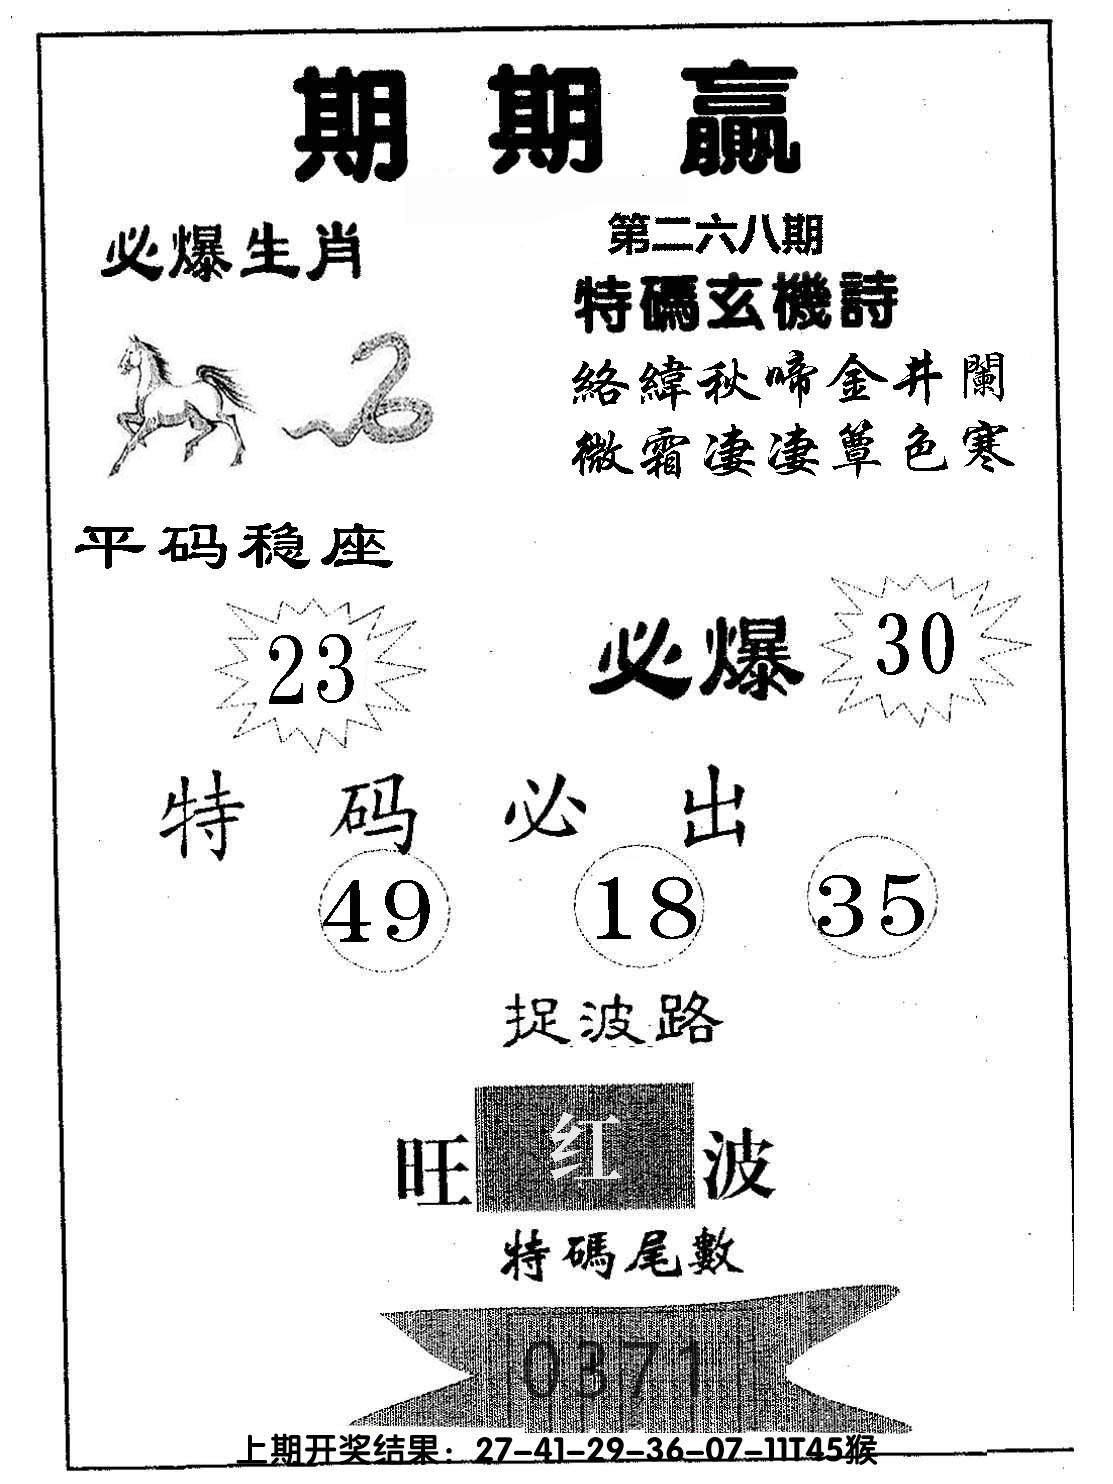 期期赢
必爆生肖
第二六八期
特碼玄機詩
絡緯秋啼金井闌
微霜凄凄簟色寒
平码稳座
23
必爆 30
特码必出
49 18 35
捉波路
旺红波
特碼尾數
0371
上期开奖结果：27-41-29-36-07-11T45猴